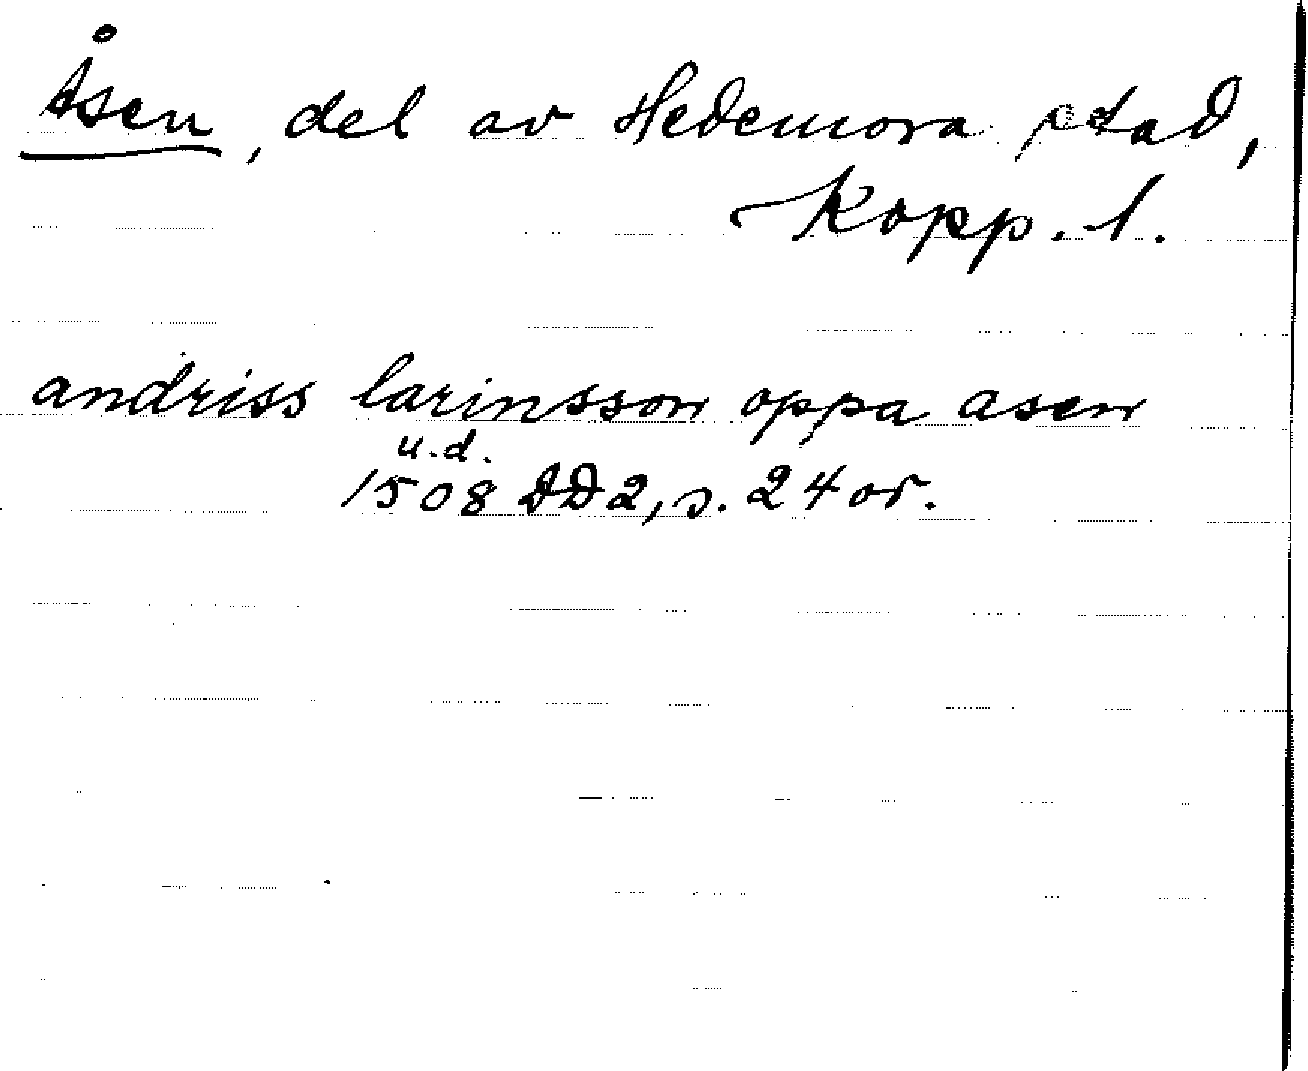 Åsen, del av Hedemora stad,
Kopp. l.
andriss larinsson oppa asen
u.d.
1508 DD2, s. 24 or.